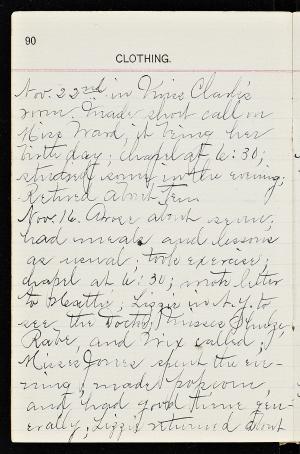 90
CLOTHING.
Nov. 22nd in Miss Clark's
room. Made short call on
Miss Ward, it being her
birthday; chapel at 6:30;
studied some in the evening;
Retired about ten.
Nov. 16. Arose about seven;
had meals, and lessons
as usual; took exercise;
chapel at 6:30; wrote letter
to Mattie; Lizzie in N.Y. to
see the Doctor; Misses
Rabe, and Mix called;
Misses Jones spent the eve-
ning; made popcorn,
and had good time gen-
erally; Lizzie returned about